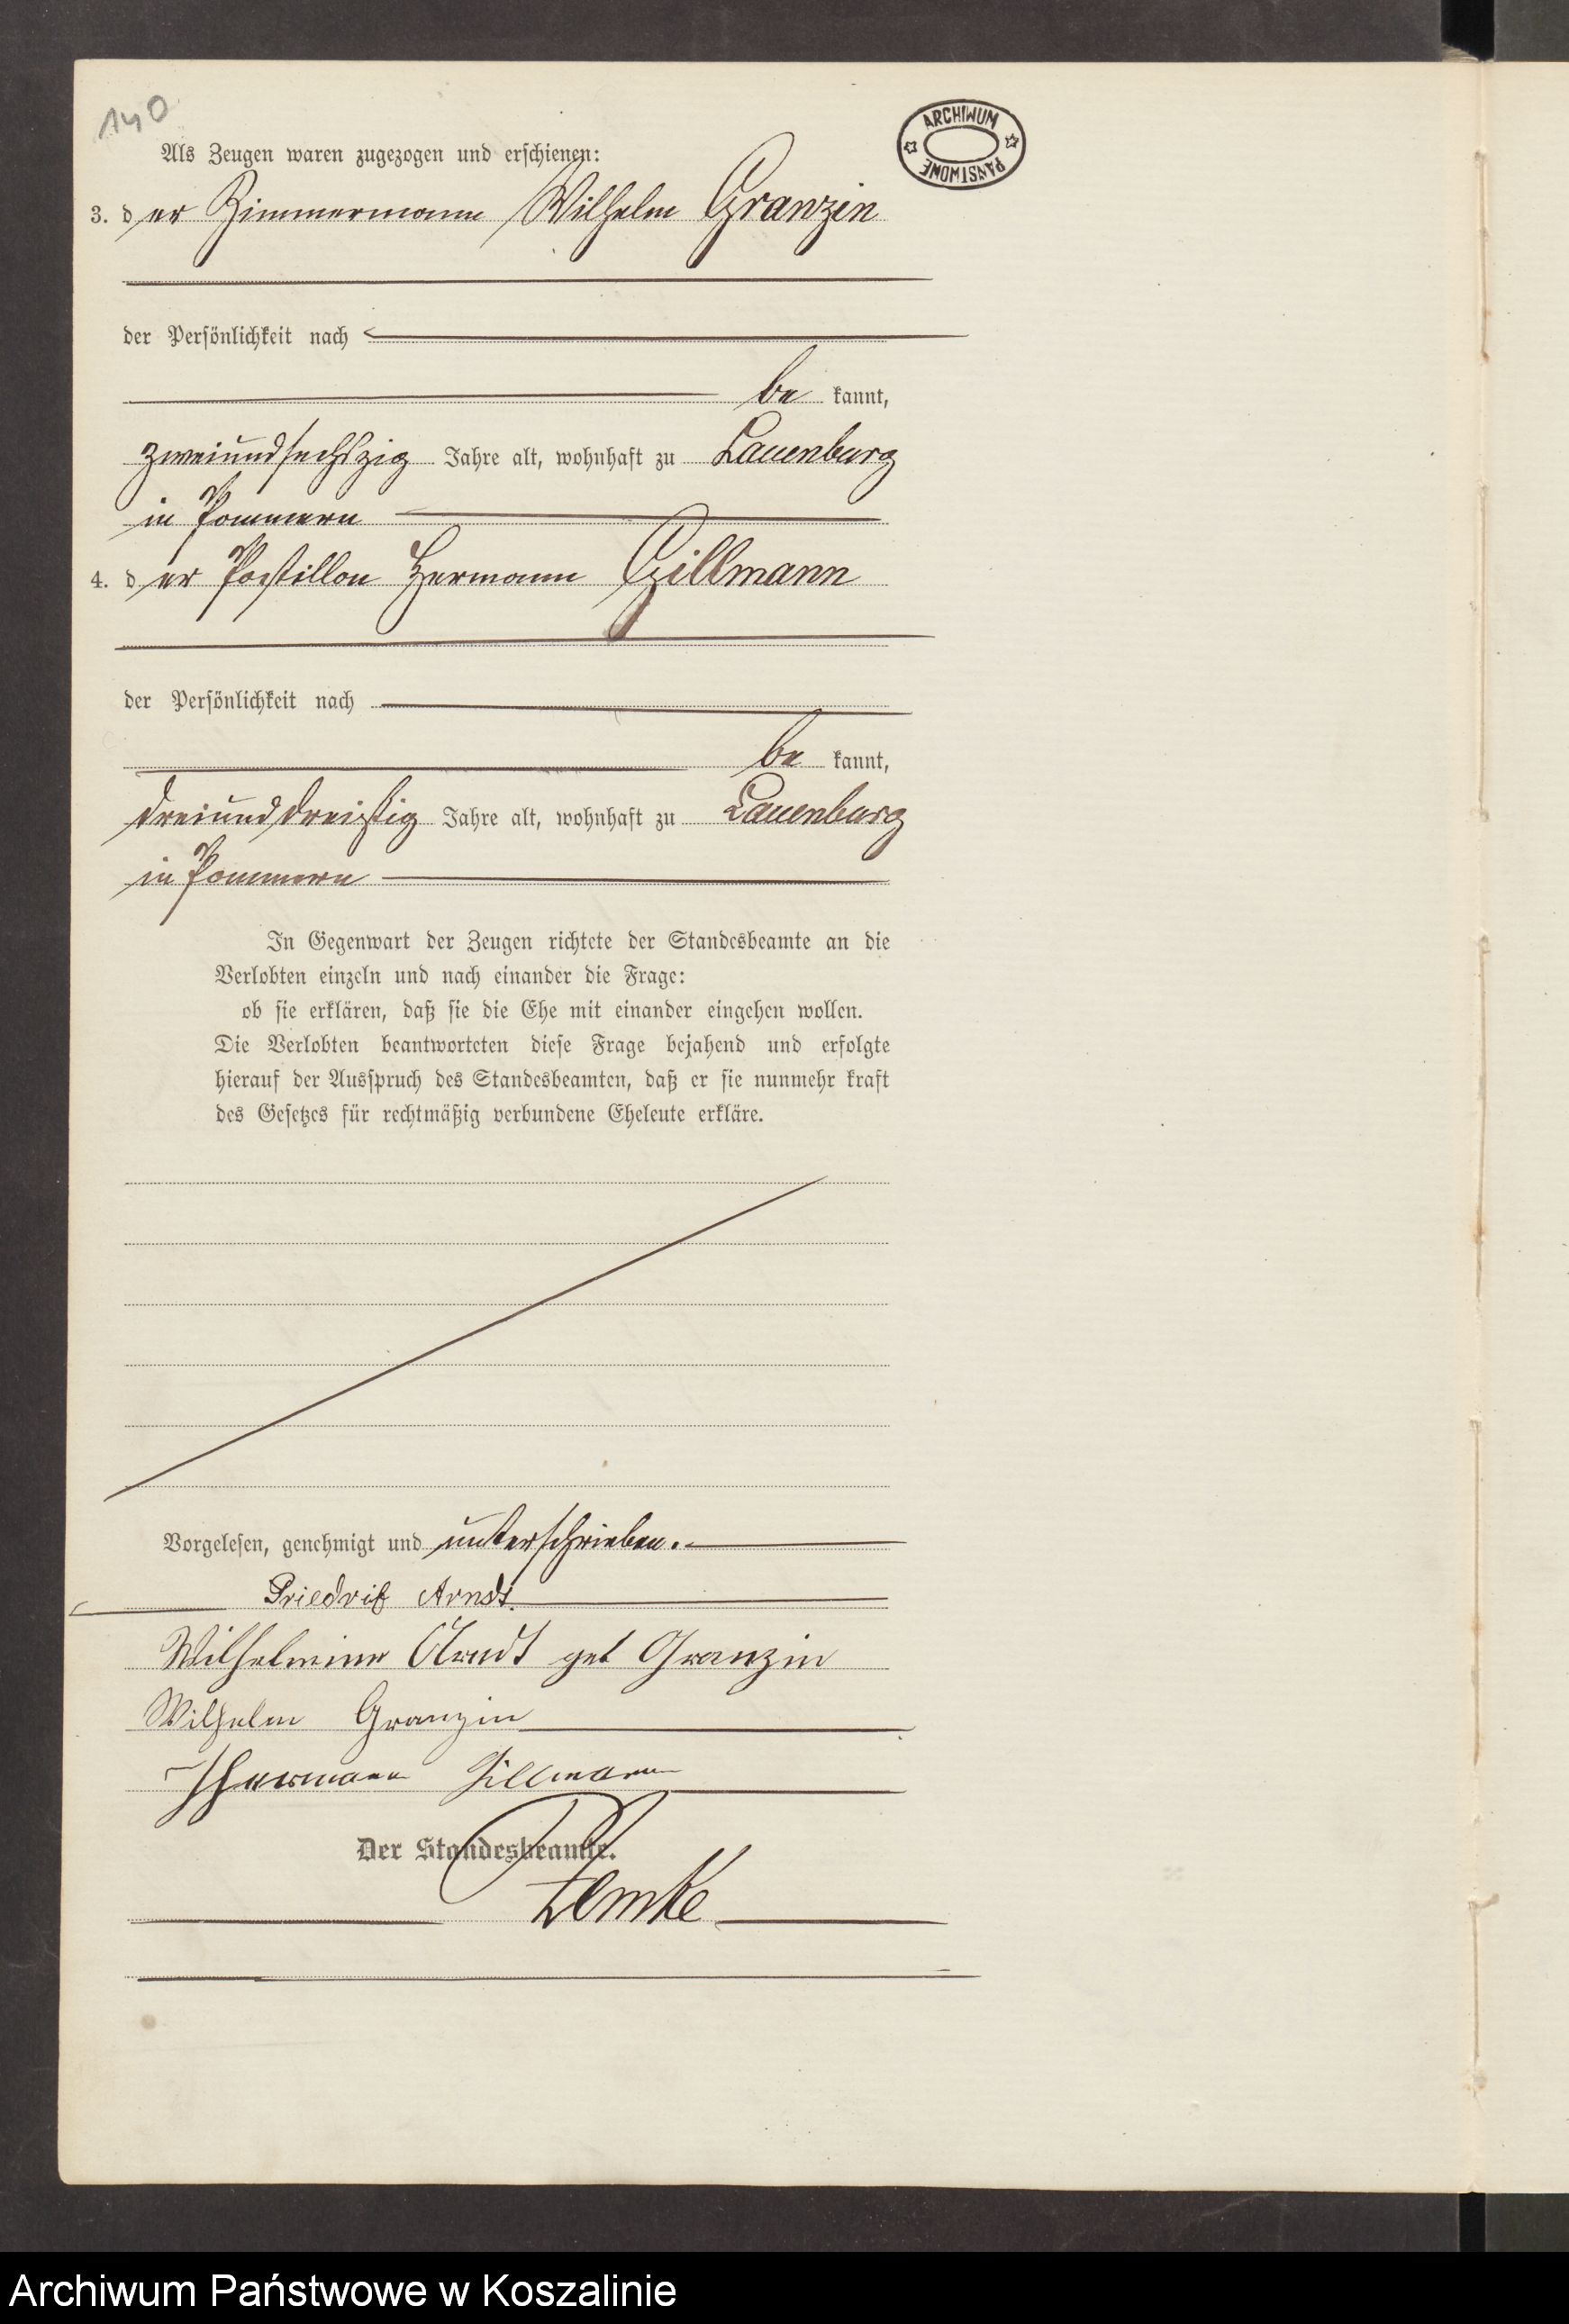 140
ARCHIWUM PAŃSTWOWE
Als Zeugen waren zugezogen und erschienen:
3. der Zimmermann Wilhelm Granzin
der Persönlichkeit nach
be kannt,
zweiundsechszig Jahre alt, wohnhaft zu Lauenburg
in Pommern
4. der Postillon Hermann Gillmann
der Persönlichkeit nach
be kannt,
dreiunddreißig Jahre alt, wohnhaft zu Lauenburg
in Pommern
In Gegenwart der Zeugen richtete der Standesbeamte an die
Verlobten einzeln und nach einander die Frage:
ob sie erklären, daß sie die Ehe mit einander eingehen wollen.
Die Verlobten beantworteten diese Frage bejahend und erfolgte
hierauf der Ausspruch des Standesbeamten, daß er sie nunmehr kraft
des Gesetzes für rechtmäßig verbundene Eheleute erkläre.
Vorgelesen, genehmigt und unterschrieben.
Friedrich Arndt.
Wilhelmine Arndt geb Granzin
Wilhelm Granzin
Hermann Gillmann
Der Standesbeamte.
Zemke
Archiwum Państwowe w Koszalinie